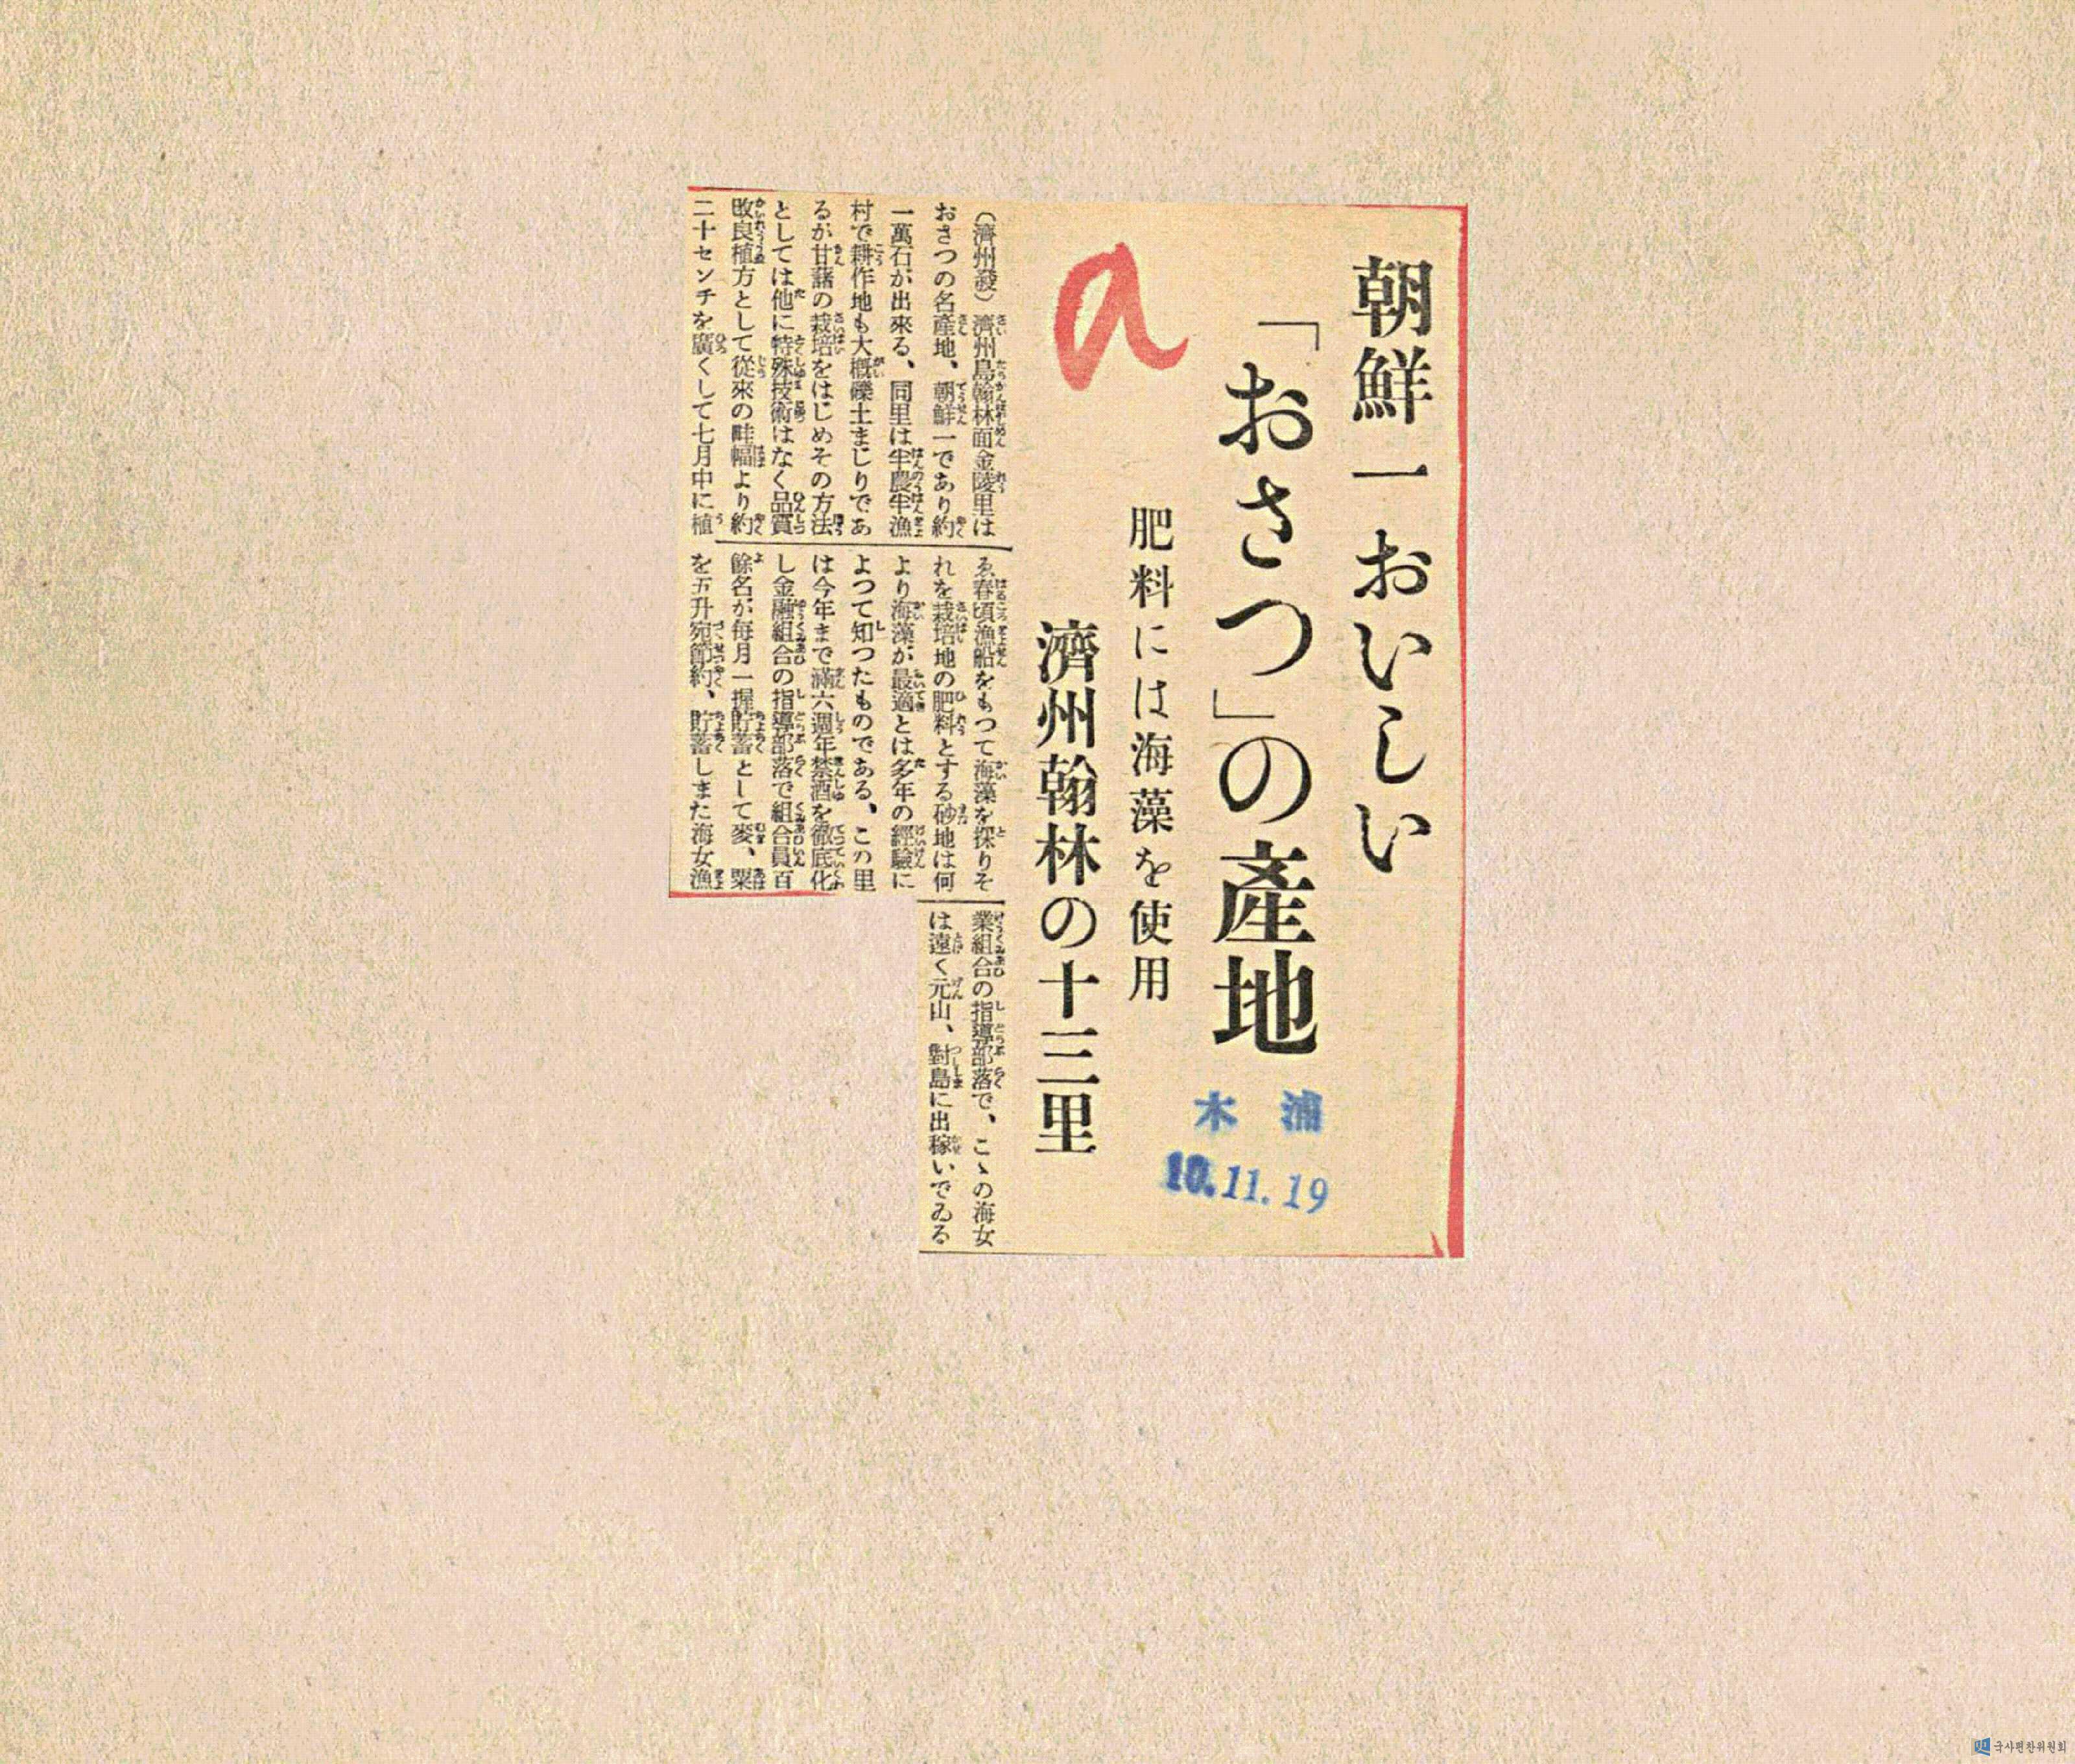 朝鮮一おいしい
「おさつ」の産地
肥料には海藻を使用
濟州翰林の十三里
木浦
10.11.19
a
(濟州發)濟州島翰林面金陵里は
おさつの名産地、朝鮮一であり約
一萬石が出來る、同里は半農半漁
村で耕作地も大概礫土まじりであ
るが甘藷の栽培をはじめその方法
としては他に特殊技術はなく品質
改良植方として從來の畦幅より約
二十センチを廣くして七月中に植
ゑ春頃漁船をもつて海藻を採りそ
れを栽培地の肥料とする砂地は何
より海藻が最適とは多年の經驗に
よつて知つたものである、この里
は今年まで滿六週年禁酒を徹底化
し金融組合の指導部落で組合員百
餘名が毎月一握貯蓄として麥、粟
を五升宛節約、貯蓄しまた海女漁
業組合の指導部落で、こゝの海女
は遠く元山、對島に出稼いでゐる
국사편찬위원회